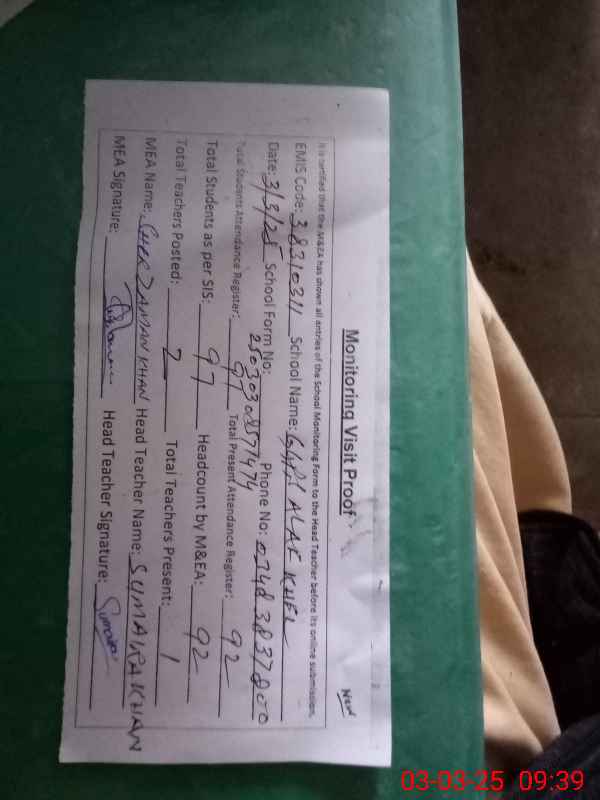 Monitoring Visit Proof
New
It is certified that the M&EA has shown all entries of the School Monitoring Form to the Head Teacher before its online submission.
EMIS Code: 38310311 School Name: ALAF KHEL
Date: 3/3/25 School Form No: Phone No:
Total Students Attendance Register: 97 Total Present Attendance Register: 92
Total Students as per SIS: 97 Headcount by M&EA: 92
Total Teachers Posted: 2 Total Teachers Present: 1
MEA Name: SHER ZAMAN KHAN Head Teacher Name: SUMAIRA KHAN
MEA Signature: Head Teacher Signature: Sumaira
03-03-25 09:39